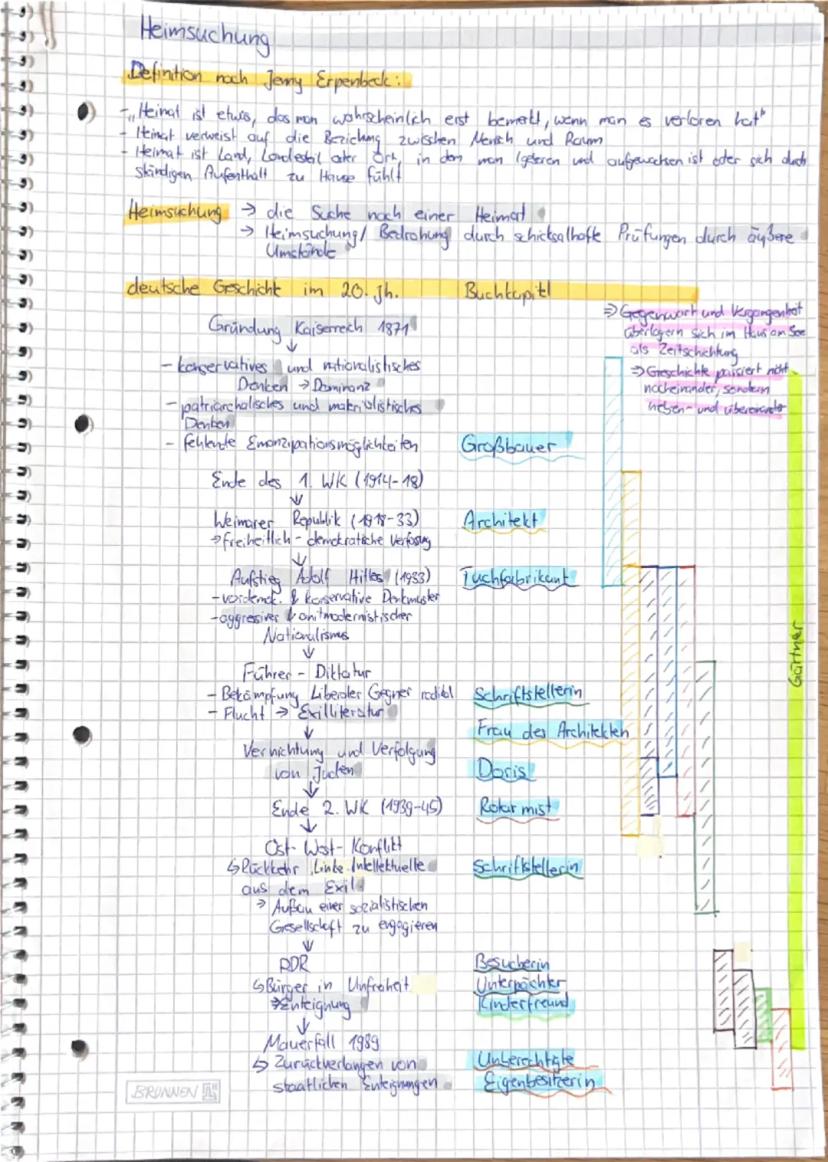 Heimsuchung
Definition nach Jenny Erpenbeck:
- "Heimat ist etwas, das man wahrscheinlich erst bemerkt, wenn man es verloren hat"
- Heimat verweist auf die Beziehung zwischen Mensch und Raum
- Heimat ist Land, Landesteil oder Ort, in dem man geboren und aufgewachsen ist oder sich durch
ständigen Aufenthalt zu Hause fühlt
Heimsuchung → die Suche nach einer Heimat
→ Heimsuchung/ Bedrohung durch schicksalhafte Prüfungen durch äußere
Umstände
deutsche Geschichte im 20. Jh. Buchkapitl
⇒ Gegenwart und Vergangenheit
überlagern sich im Haus am See
als Zeitschichtung
⇒ Geschichte passiert nicht
nacheinander, sondern
neben- und übereinander
Gründung Kaiserreich 1871
↓
- konservatives und nationalistisches
Denken → Dominanz
- patriarchalisches und materialistisches
Denken
- fehlende Emanzipationsmöglichkeiten Großbauer
Ende des 1. WK (1914-18)
↓
Weimarer Republik (1918-33) Architekt
→ freiheitlich-demokratische Verfassung
↓
Aufstieg Adolf Hitler (1933) Tuchfabrikant
- vordemok. & konservative Denkmuster
- aggressiver & antimodernistischer
Nationalismus
↓
Führer-Diktatur
- Bekämpfung Liberaler Gegner radikal Schriftstellerin
- Flucht → Exilliteratur
↓ Frau des Architekten
Vernichtung und Verfolgung
von Juden Doris
↓
Ende 2. WK (1939-45) Rotarmist
↓
Ost-West-Konflikt
↳ Rückkehr Linke Intellektuelle Schriftstellerin
aus dem Exil
→ Aufbau einer sozialistischen
Gesellschaft zu engagieren
↓
DDR Besucherin
↳ Bürger in Unfreiheit Unterpächter
→ Enteignung Kinderfreund
↓
Mauerfall 1989
↳ Zurückverlangen von Unberechtigte
staatlichen Enteignungen Eigenbesitzerin
Gärtner
BRUNNEN